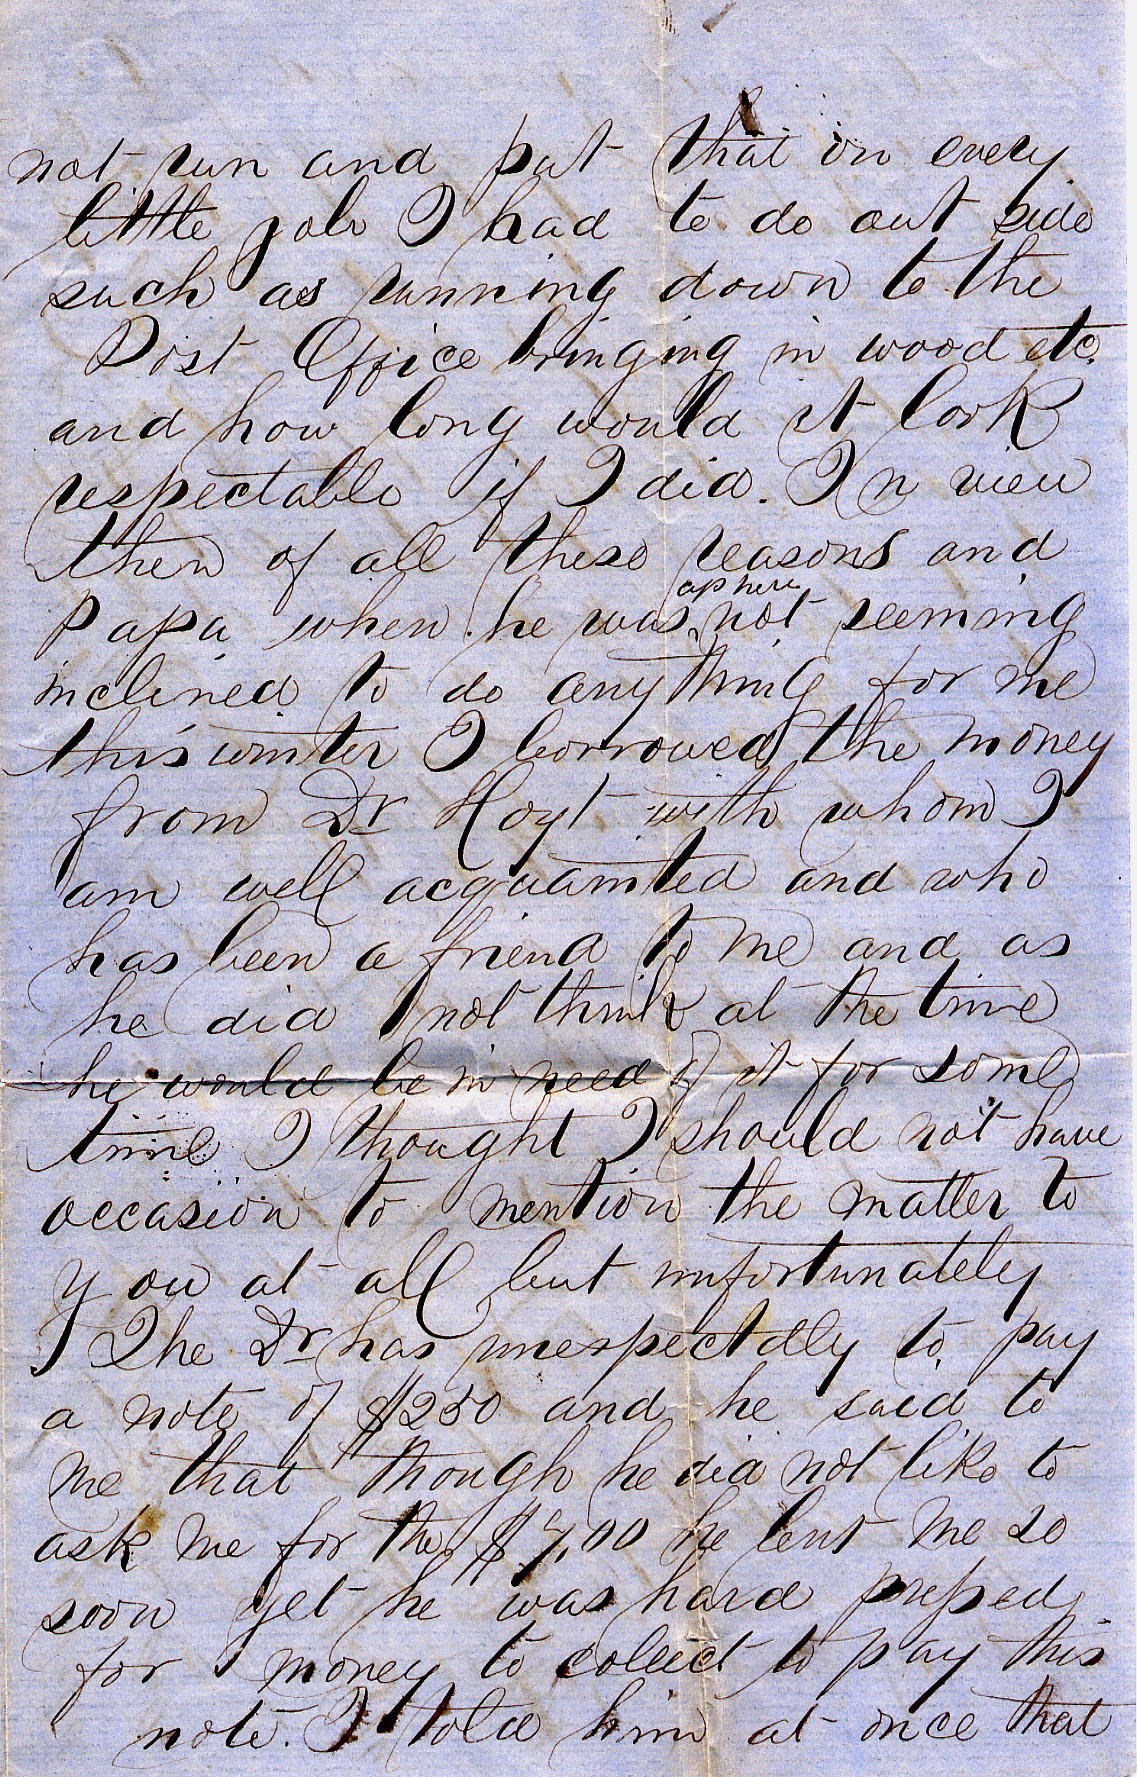 not run and put that on every
little job I had to do out side
such as running down to the
Post Office bringing in wood etc.
and how long would it look
respectable if I did. In view
then of all these reasons and
Papa when he was up here not seeming
inclined to do anything for me
this winter I borrowed the money
from Dr Hoyt with whom I
am well acquainted and who
has been a friend to me and as
he did not think at the time
he would be in need of it for some
time I thought I should not have
occasion to mention the matter to
you at all but unfortunately
The Dr has unexpectdly to pay
a note of $250 and he said to
me that though he did not like to
ask me for the $7,00 he lent me so
soon yet he was hard pressed
for money to colect to pay this
note. I told him at once that